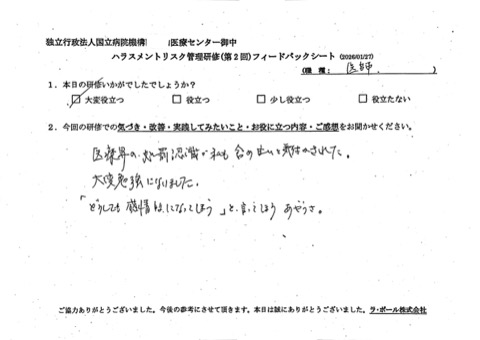 独立行政法人国立病院機構 医療センター御中
ハラスメントリスク管理研修(第2回)フィードバックシート (2026/01/27)
(職 種: 医師 )
1.本日の研修いかがでしたでしょうか?
☑ 大変役立つ □ 役立つ □ 少し役立つ □ 役立たない
2.今回の研修での気づき・改善・実践してみたいこと・お役に立つ内容・ご感想をお聞かせください。
医療界の 認識が私も 気付かされた。
大変勉強になりました。
「どうしても感情的になってしまう」と言ってしまう あやうさ。
ご協力ありがとうございました。今後の参考にさせて頂きます。本日は誠にありがとうございました。ラ・ポール株式会社